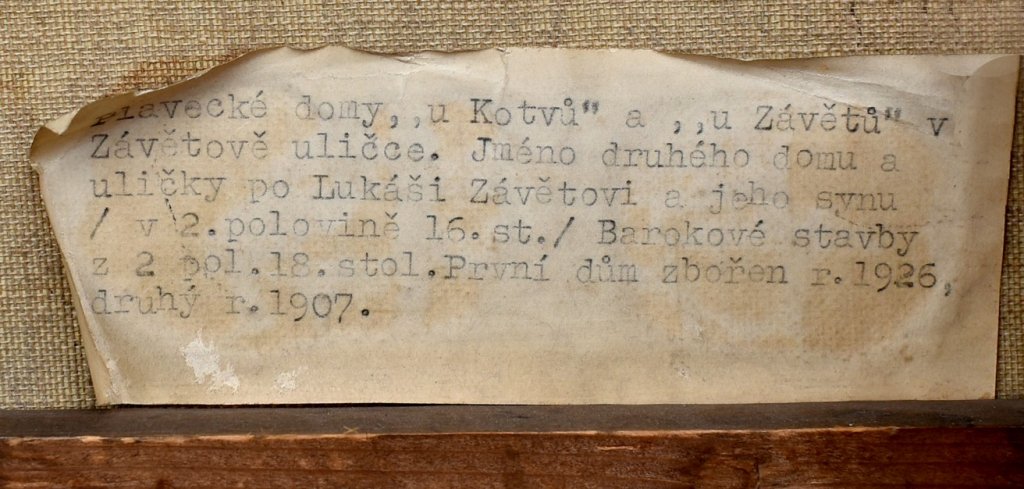 Plavecké domy,,u Kotvů" a ,,u Závětů" v
Závětově uličce. Jméno druhého domu a
uličky po Lukáši Závětovi a jeho synu
/ v 2.polovině 16.st./ Barokové stavby
z 2 pol.18.stol.První dům zbořen r.1926,
druhý r.1907.